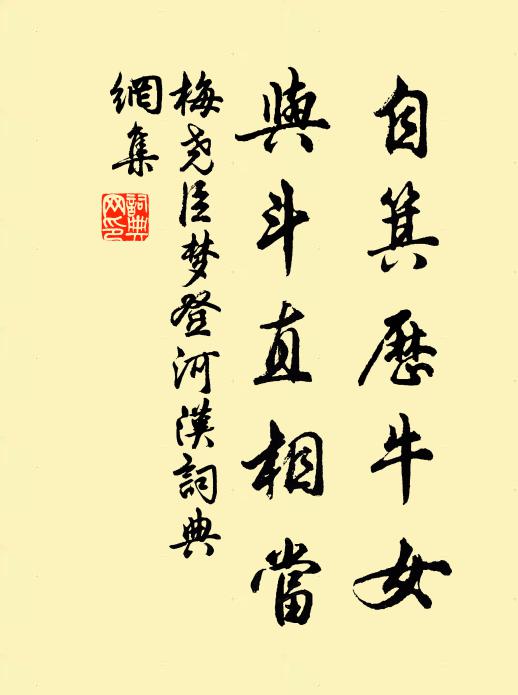 自箕歷牛女
與斗直相當
梅尧臣梦登河漢詞典
網集
詞典
网印